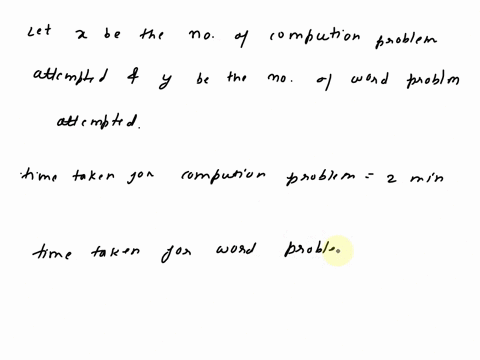 Let x be the no. of compution problem
attempted & y be the no. of word problm
attempted.
time taken for compution problem = 2 min
time taken for word proble